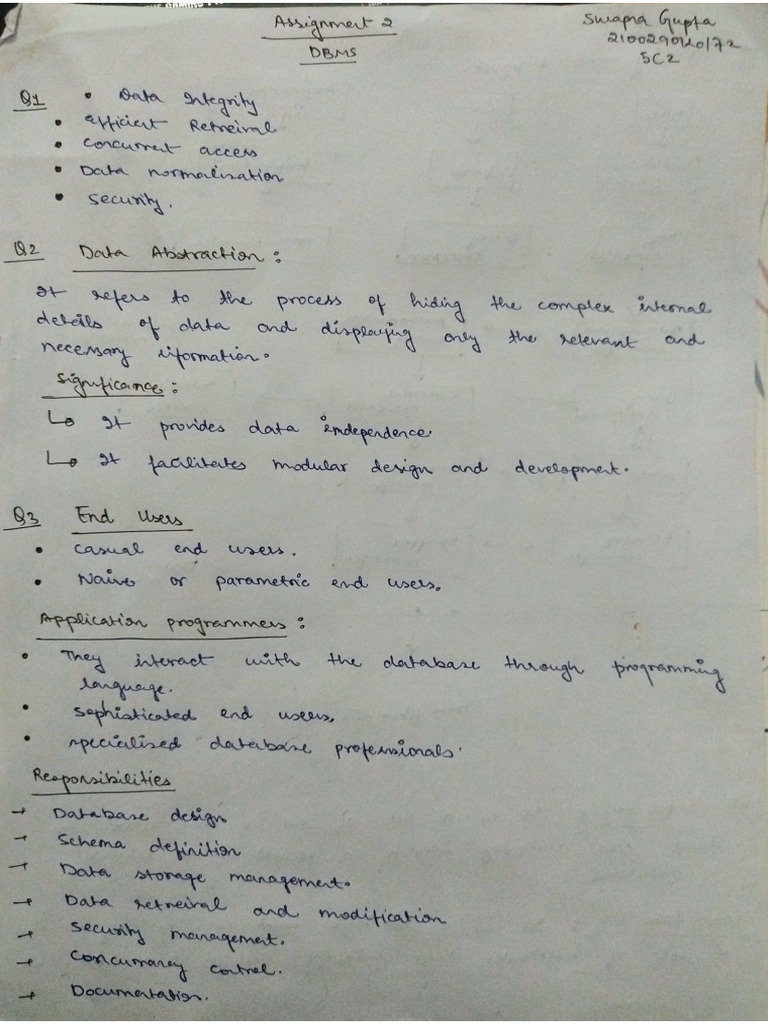 Assignment 2
DBMS
Swapna Gupta
5C2
Q1 • Data Integrity
• Efficient Retreival
• Concurrent access
• Data normalisation
• Security.
Q2 Data Abstraction :
It refers to the process of hiding the complex internal
details of data and displaying only the relevant and
necessary information.
Significance :
↳ It provides data independence.
↳ It facilitates modular design and development.
Q3 End Users
• Casual end users.
• Naive or parametric end users.
Application programmers :
• They interact with the database through programming
language.
• Sophisticated end users.
• specialised database professionals.
Responsibilities
→ Database design
→ Schema definition
→ Data storage management.
→ Data retreival and modification
→ Security management.
→ Concurrancy control.
→ Documentation.